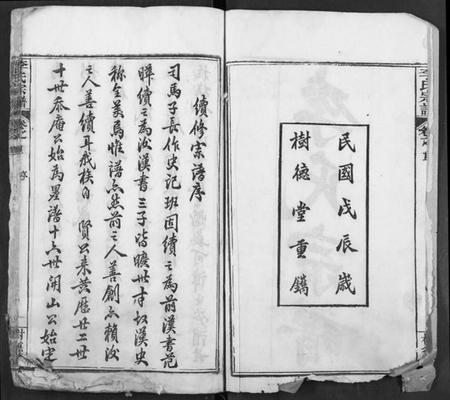 李氏宗譜
民國戊辰歲
樹德堂重鐫
續修宗譜序
司馬子長作史記班固續之為前漢書范
曄續之為後漢書三子皆曠世才故漢史
稱全美焉惟譜亦然前之人善創亦賴後
之人善續耳我族自 賢公來黃歷廿二世
十世泰庵公始為墨譜十六世開山公始
李氏宗譜
序